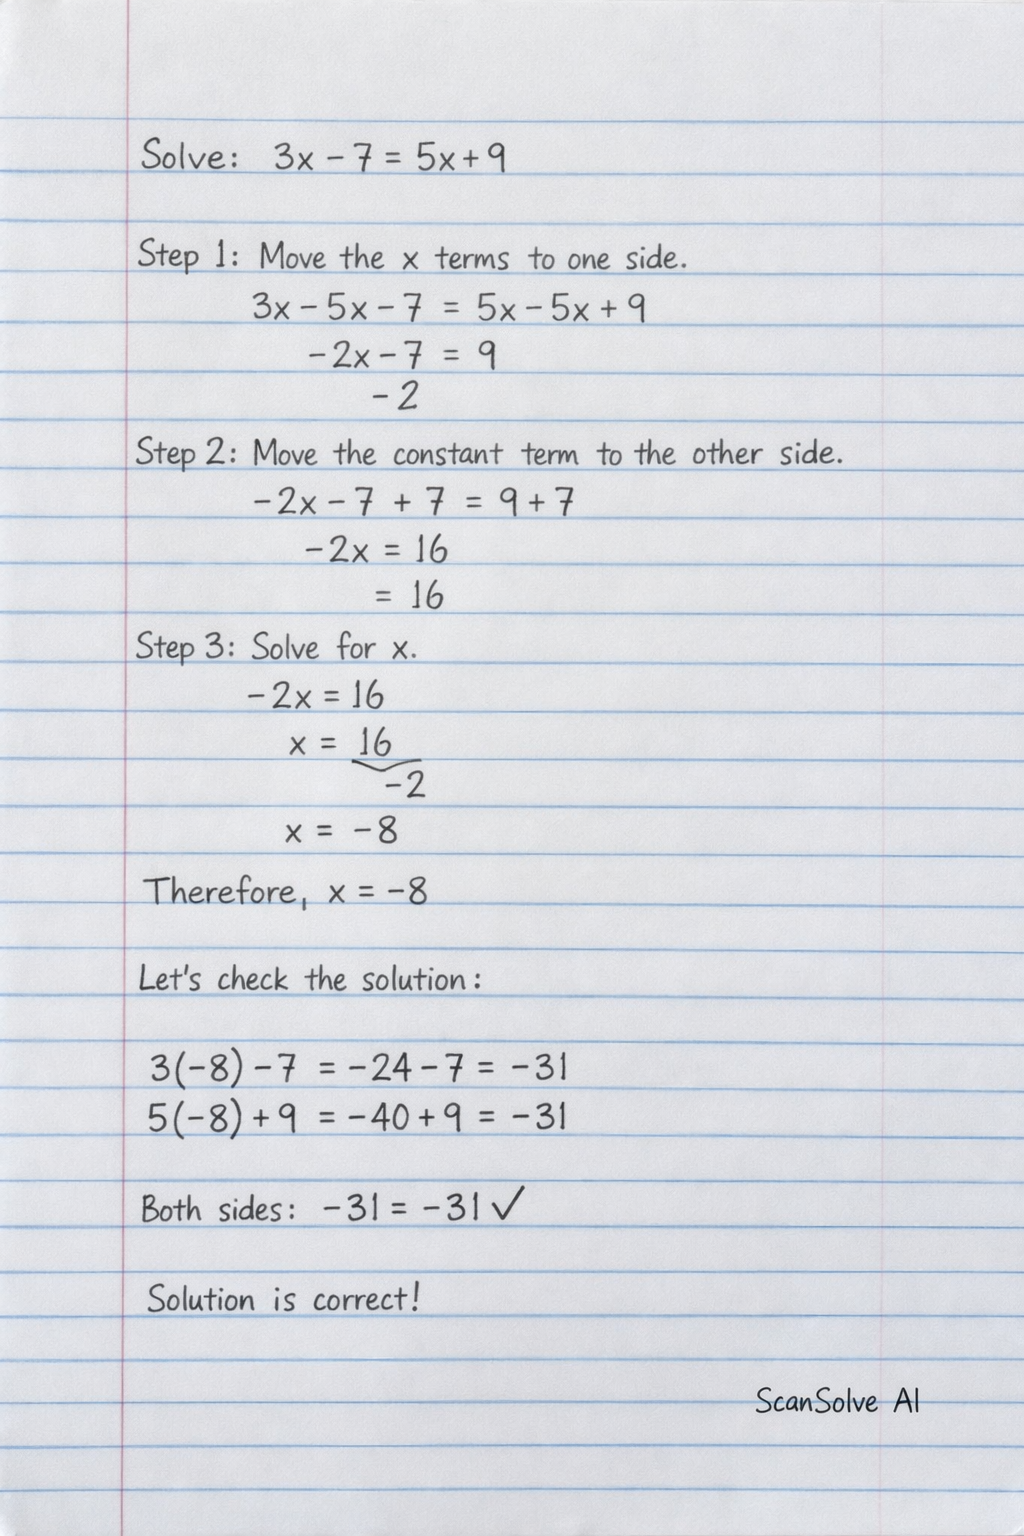 Solve: 3x - 7 = 5x + 9
Step 1: Move the x terms to one side.
3x - 5x - 7 = 5x - 5x + 9
-2x - 7 = 9
-2
Step 2: Move the constant term to the other side.
-2x - 7 + 7 = 9 + 7
-2x = 16
= 16
Step 3: Solve for x.
-2x = 16
x = 16
-2
x = -8
Therefore, x = -8
Let's check the solution:
3(-8) - 7 = -24 - 7 = -31
5(-8) + 9 = -40 + 9 = -31
Both sides: -31 = -31 ✓
Solution is correct!
ScanSolve AI